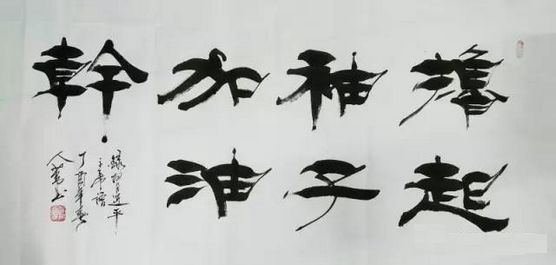 擼起
袖子
加油
幹
錄習近平
主席語
丁酉年春